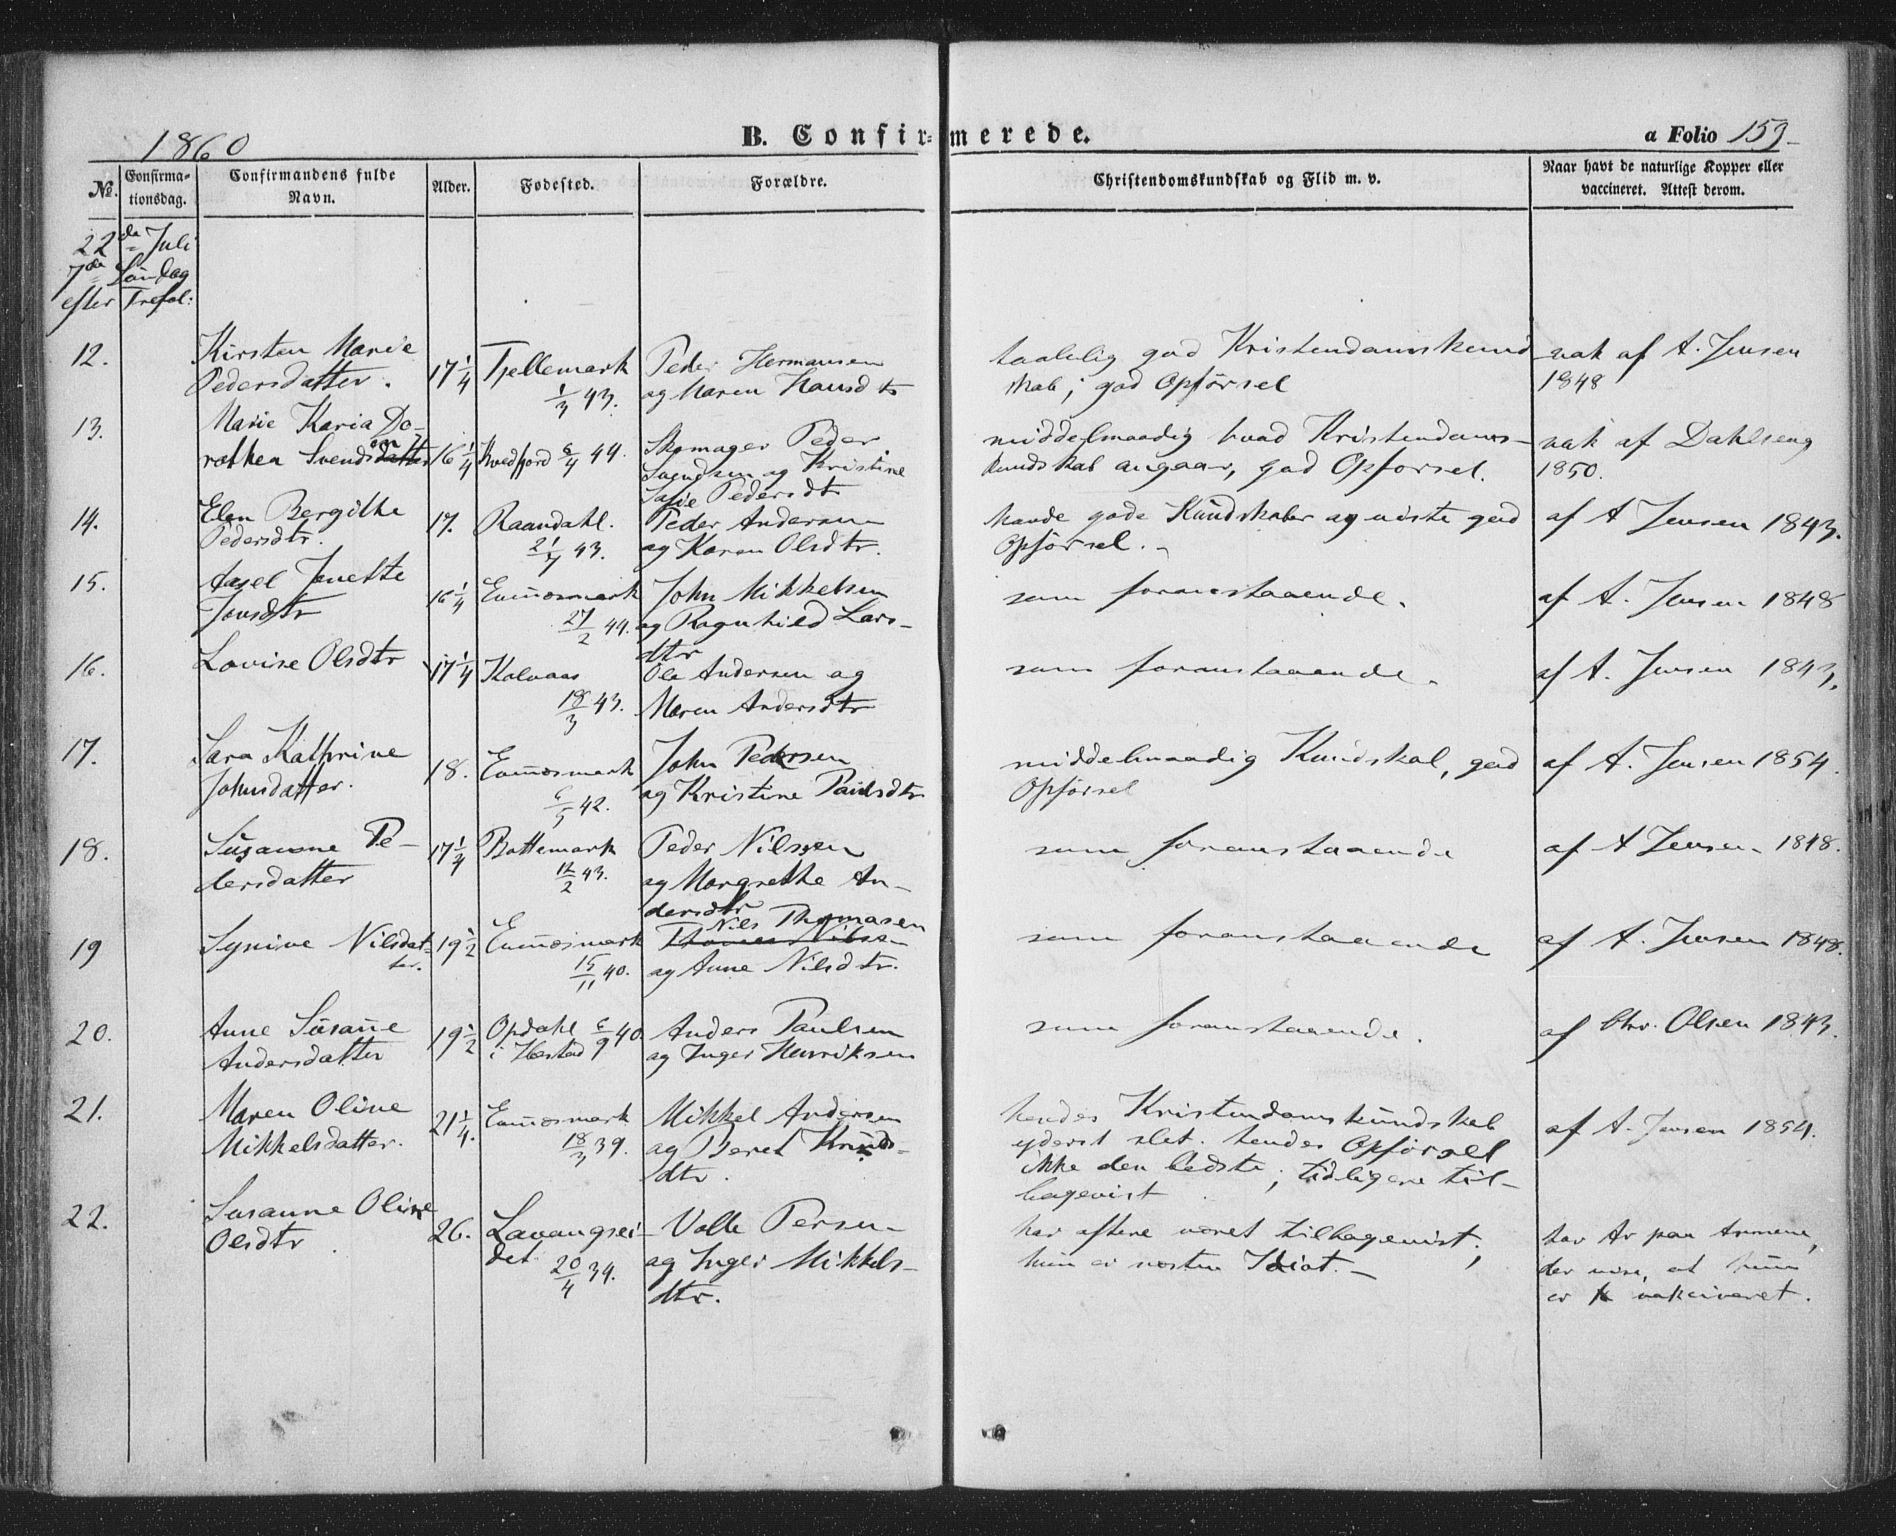 1860 B. Confirmerede. a Folio 159
No. Confirmationsdag. Confirmandens fulde Navn. Alder. Fødested. Forældre. Christendomskundskab og Flid m. v. Naar havt de naturlige Kopper eller vaccineret. Attest derom.
22de Juli
7de Søndag
efter Trefol:
12. Kirsten Marie Tjellemark Peder Hermansen taalelig god Kristendomskund- vak af A. Jensen
Pedersdatter. 17 1/4 1/3 43. og Maren Hansdtr skab; god Opførsel 1848
13. Marie Karia Do- Skomager Peder middelmaadig hvad Kristendoms- vak af Dahlseng
rothea Svendsdatter 16 1/4 Kvedfjord 6/4 44. Svendsen og Kristine kundskab angaar, god Opførsel. 1850.
sen Pedersdtr
14. Elen Bergithe 17. Raandahl. Peder Andersen havde gode Kundskaber og viste god af A Jensen 1843.
Pedersdtr. 21/7 43. og Karen Olsdtr. Opførsel.
15. Jenette 16 1/4 Evenesmark John Mikkelsen som foranstaaende. af A. Jensen 1848
Jonsdtr 27/2 44. og Ragnhild Lars-
dtr
16. Lovise Olsdtr 17 1/4 Kolvaas Ole Andersen og som foranstaaende. af A. Jensen 1843.
18/3 43. Maren Andersdtr
17. Sara Kathrine 18. Evenesmark John Pedersen middelmaadig Kundskab, god af A. Jensen 1854.
Johnsdatter. 6/5 42. og Kristine Paulsdtr Opførsel
18. Susanne Pe- 17 1/4 Bottemark Peder Nilssen som foranstaaende af A Jensen 1848.
dersdatter 12/2 43. og Margrethe An-
dersdtr
Nils Thomasen
19 Synive Nilsdat- 19 1/2 Evenesmark Thomas Nilsen som foranstaaende af A. Jensen 1848.
ter. 15/11 40. og Anne Nilsdtr.
20. Anne Susanne 19 1/2 Opdahl 6/9 40 Anders Paulsen som foranstaaende. af Chr. Olsen 1843.
Andersdatter i og Inger Henriksen
21. Maren Oline 21 1/4. Evenesmark Mikkel Andersen hendes Kristendomskundskab af A. Jensen 1854.
Mikkelsdatter. 18/3 39. og Beret Knuds- yderst slet. hendes Opførsel
dtr. ikke den bedste; tidligere til-
bagevist
22. Susanne Oline 26. Lavangsei- Volle Persen har oftere været tilbagevist; har Ar paa Armene,
Olsdtr det 20/4 34. og Inger Mikkels- hun er næsten Idiot. der vise, at hun
dtr. er vakcineret.